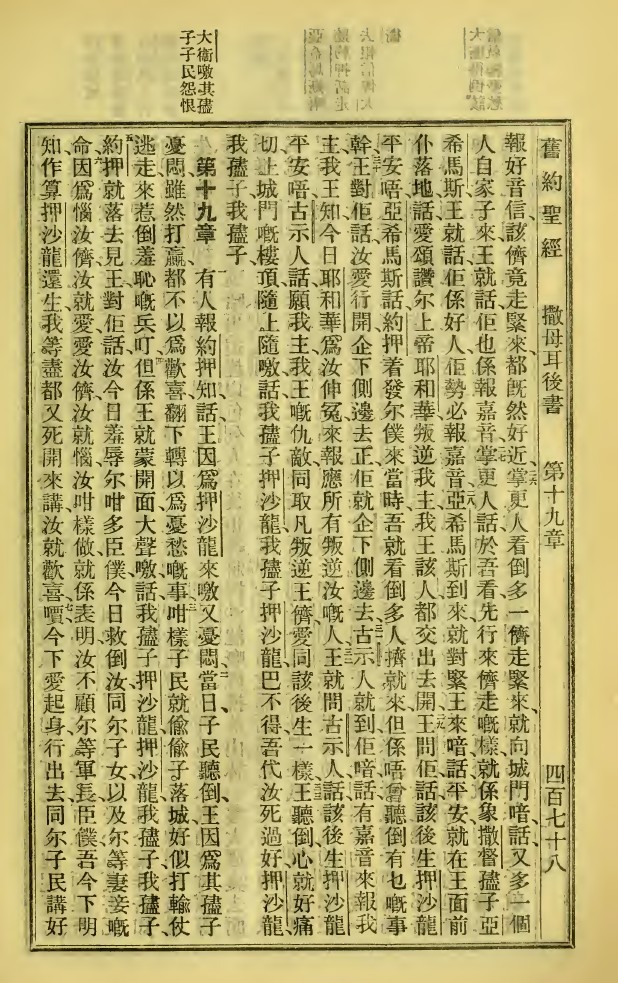 舊約聖經 撒母耳後書 第十九章 四百七十八
報好音信該儕竟走緊來都旣然好近掌更人看倒多一儕走緊來就向城門喑話又多一個
人自家子來王就話佢也係報嘉音掌更人話於吾看先行來儕走嘅樣就係象撒督孻子亞
希馬斯王就話佢係好人佢勢必報嘉音亞希馬斯到來就對緊王來喑話平安就在王面前
仆落地話愛頌讚尔上帝耶和華叛逆我主我王該人都交出去開王問佢話該後生押沙龍
平安唔亞希馬斯話約押着發尔僕來當時吾就看倒多人擠就來但係唔曾聽倒有乜嘅事
幹王對佢話汝愛行開企下側邊去正佢就企下側邊去古示人就到佢喑話有嘉音來報我
主我王知今日耶和華爲汝伸冤來報應所有叛逆汝嘅人王就問古示人話該後生押沙龍
平安唔古示人話願我主我王嘅仇敵同取凡叛逆王儕愛同該後生一樣王聽倒心就好痛
切上城門嘅樓頂隨上隨噭話我孻子押沙龍我孻子押沙龍巴不得吾代汝死過好押沙龍
我孻子我孻子
第十九章 有人報約押知話王因爲押沙龍來噭又憂悶當日子民聽倒王因爲其孻子
憂悶雖然打贏都不以爲歡喜翻下轉以爲憂愁嘅事咁樣子民就偸偸子落城好似打輸仗
逃走來惹倒羞恥嘅兵叮但係王就蒙開面大聲噭話我孻子押沙龍押沙龍我孻子我孻子
約押就落去見王對佢話汝今日羞辱尔咁多臣僕今日救倒汝同尔子女以及尔等妻妾嘅
命因爲惱汝儕汝就愛愛汝儕汝就惱汝咁樣做就係表明汝不顧尔等軍長臣僕吾今下明
知作算押沙龍還生我等盡都又死開來講汝就歡喜嘖今下愛起身行出去同尔子民講好
大衛噭其孻
子子民怨恨